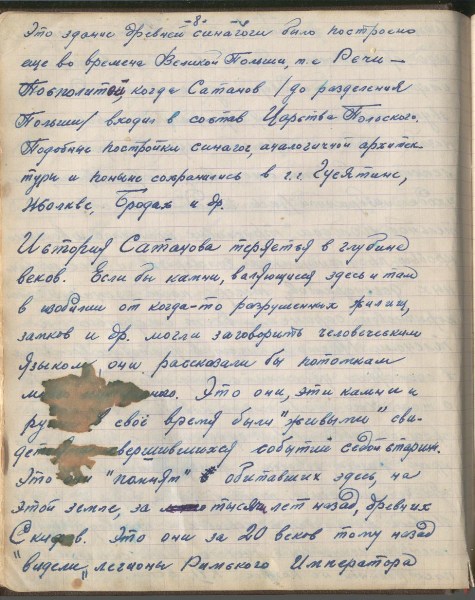 -8-
Это здание древней синагоги было построено
еще во времена Великой Польши, т.е Речи –
Посполитой, когда Сатанов /до разделения
Польши/ входил в состав Царства Польского.
Подобные постройки синагог, аналогичной архитек
туры и поныне сохранились в г.г. Гусятине,
Жволкве, Бродах и др.
История Сатанова теряется в глубине
веков. Если бы камни, валяющиеся здесь и там
в изобилии от когда-то разрушенных жилищ,
замков и др. могли заговорить человеческим
языком, они рассказали бы потомкам
м ного. Это они, эти камни и
ру своё время были "живыми" сви-
дет вершившихся событий седой старины.
Это "помнят" обитавших здесь, на
этой земле, за тысячи лет назад, древних
Скифов. Это они за 20 веков тому назад
"видели" легионы Римского Императора